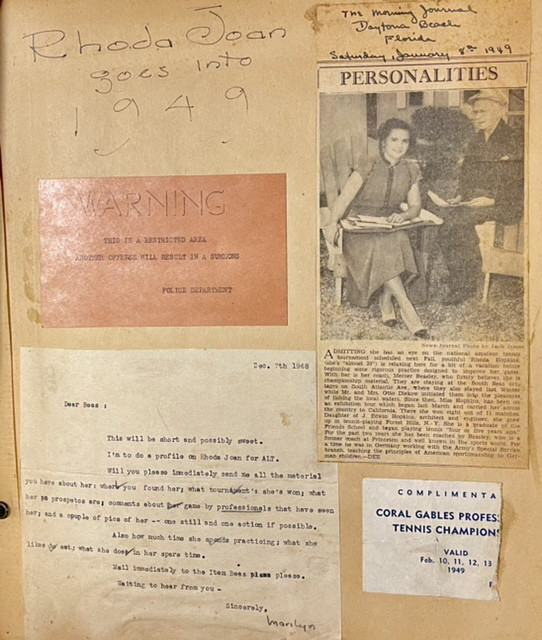 Rhoda Joan
goes into
1949
The Morning Journal
Daytona Beach
Florida
Saturday, January 8th 1949
PERSONALITIES
News-Journal Photo by Jack
ADMITTING she has an eye on the national amateur tennis
tournament scheduled next Fall, youthful Rhoda Hopkins,
(she's "almost 20") is relaxing here for a bit of a vacation before
beginning some rigorous practice designed to improve her game.
With her is her coach, Mercer Beasley, who firmly believes she is
championship material. They are staying at the South Seas cot-
tages on South Atlantic Ave., where they also stayed last Winter
while Mr. and Mrs. Otto Diekow initiated them into the pleasures
of fishing the local waters. Since then, Miss Hopkins, has been on
an exhibition tour which began last March and carried her across
the country to California. There she won eight out of 11 matches.
Daughter of J. Edwin Hopkins, architect and engineer, she grew
up in tennis-playing Forest Hills, N. Y. She is a graduate of the
Friends School and began playing tennis "four or five years ago."
For the past two years she has been coached by Beasley, who is a
former coach at Princeton and well known in the sports world. For
a time he was in Germany working with the Army's Special Service
branch, teaching the principles of American sportsmanship to Ger-
man children.—DEE
WARNING
THIS IS A RESTRICTED AREA
ANOTHER OFFENSE WILL RESULT IN A SUMMONS
POLICE DEPARTMENT
Dec. 7th 1948
Dear Beas:
This will be short and possibly sweet.
I'm to do a profile on Rhoda Joan for ALT.
Will you please immediately send me all the material
you have about her; where you found her; what tournament's she's won; what
her prospetcs are; comments about her game by professionals that have seen
her; and a couple of pics of her -- one still and one action if possible.
Also how much time she spends practicing; what she
likes to eat; what she does in her spare time.
Mail immediately to the Item Beas please.
Waiting to hear from you -
Sincerely,
Marilyn
COMPLIMENTA
CORAL GABLES PROFES
TENNIS CHAMPION
VALID
Feb. 10, 11, 12, 13
1949